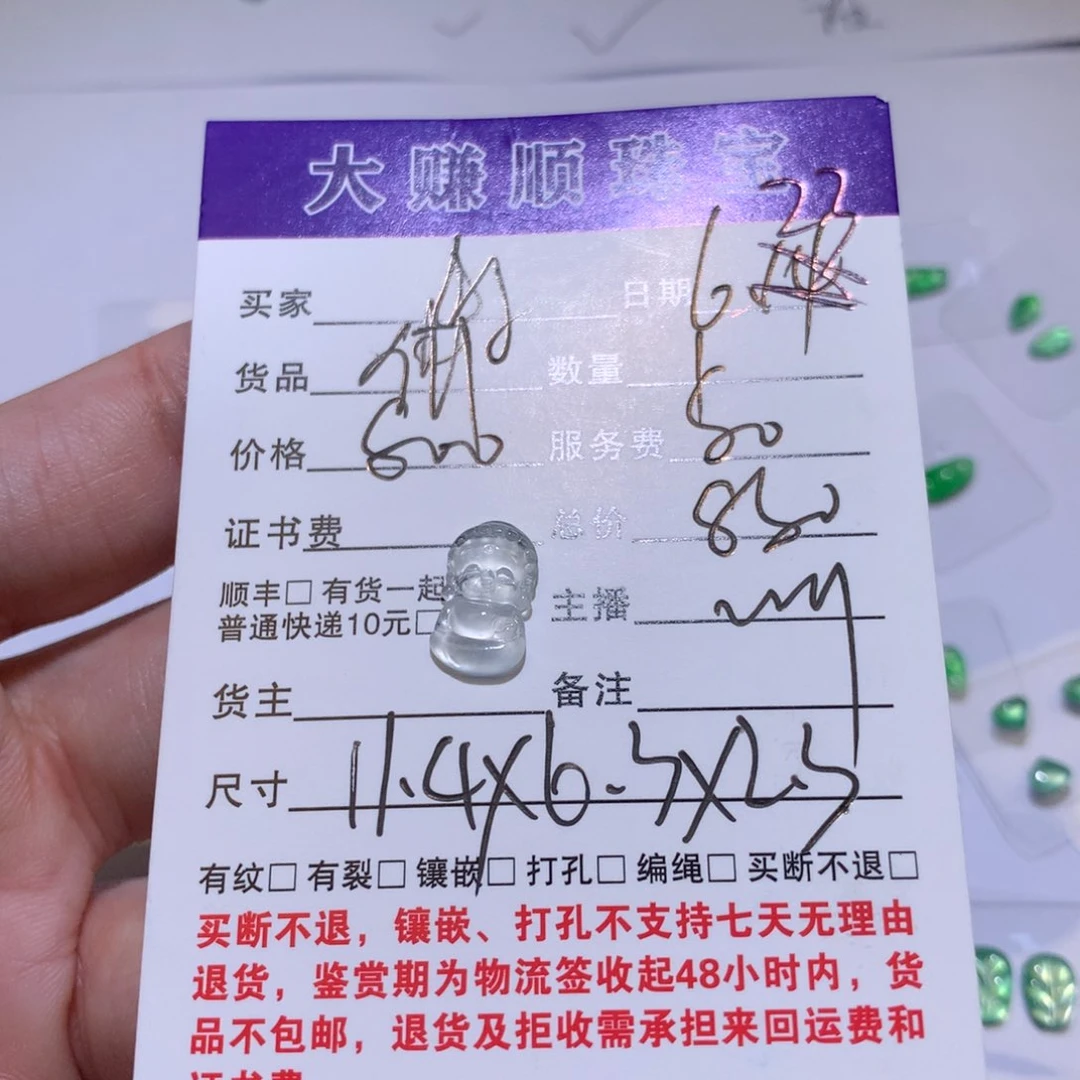 大赚顺珠宝
买家 日期 6
货品 佛 数量
价格 800 服务费 50
证书费 总价 850
顺丰□ 有货一起
普通快递10元□ 主播
货主 备注
尺寸 11.4X6.5X2.5
有纹□ 有裂□ 镶嵌□ 打孔□ 编绳□ 买断不退□
买断不退，镶嵌、打孔不支持七天无理由
退货，鉴赏期为物流签收起48小时内，货
品不包邮，退货及拒收需承担来回运费和
证书费